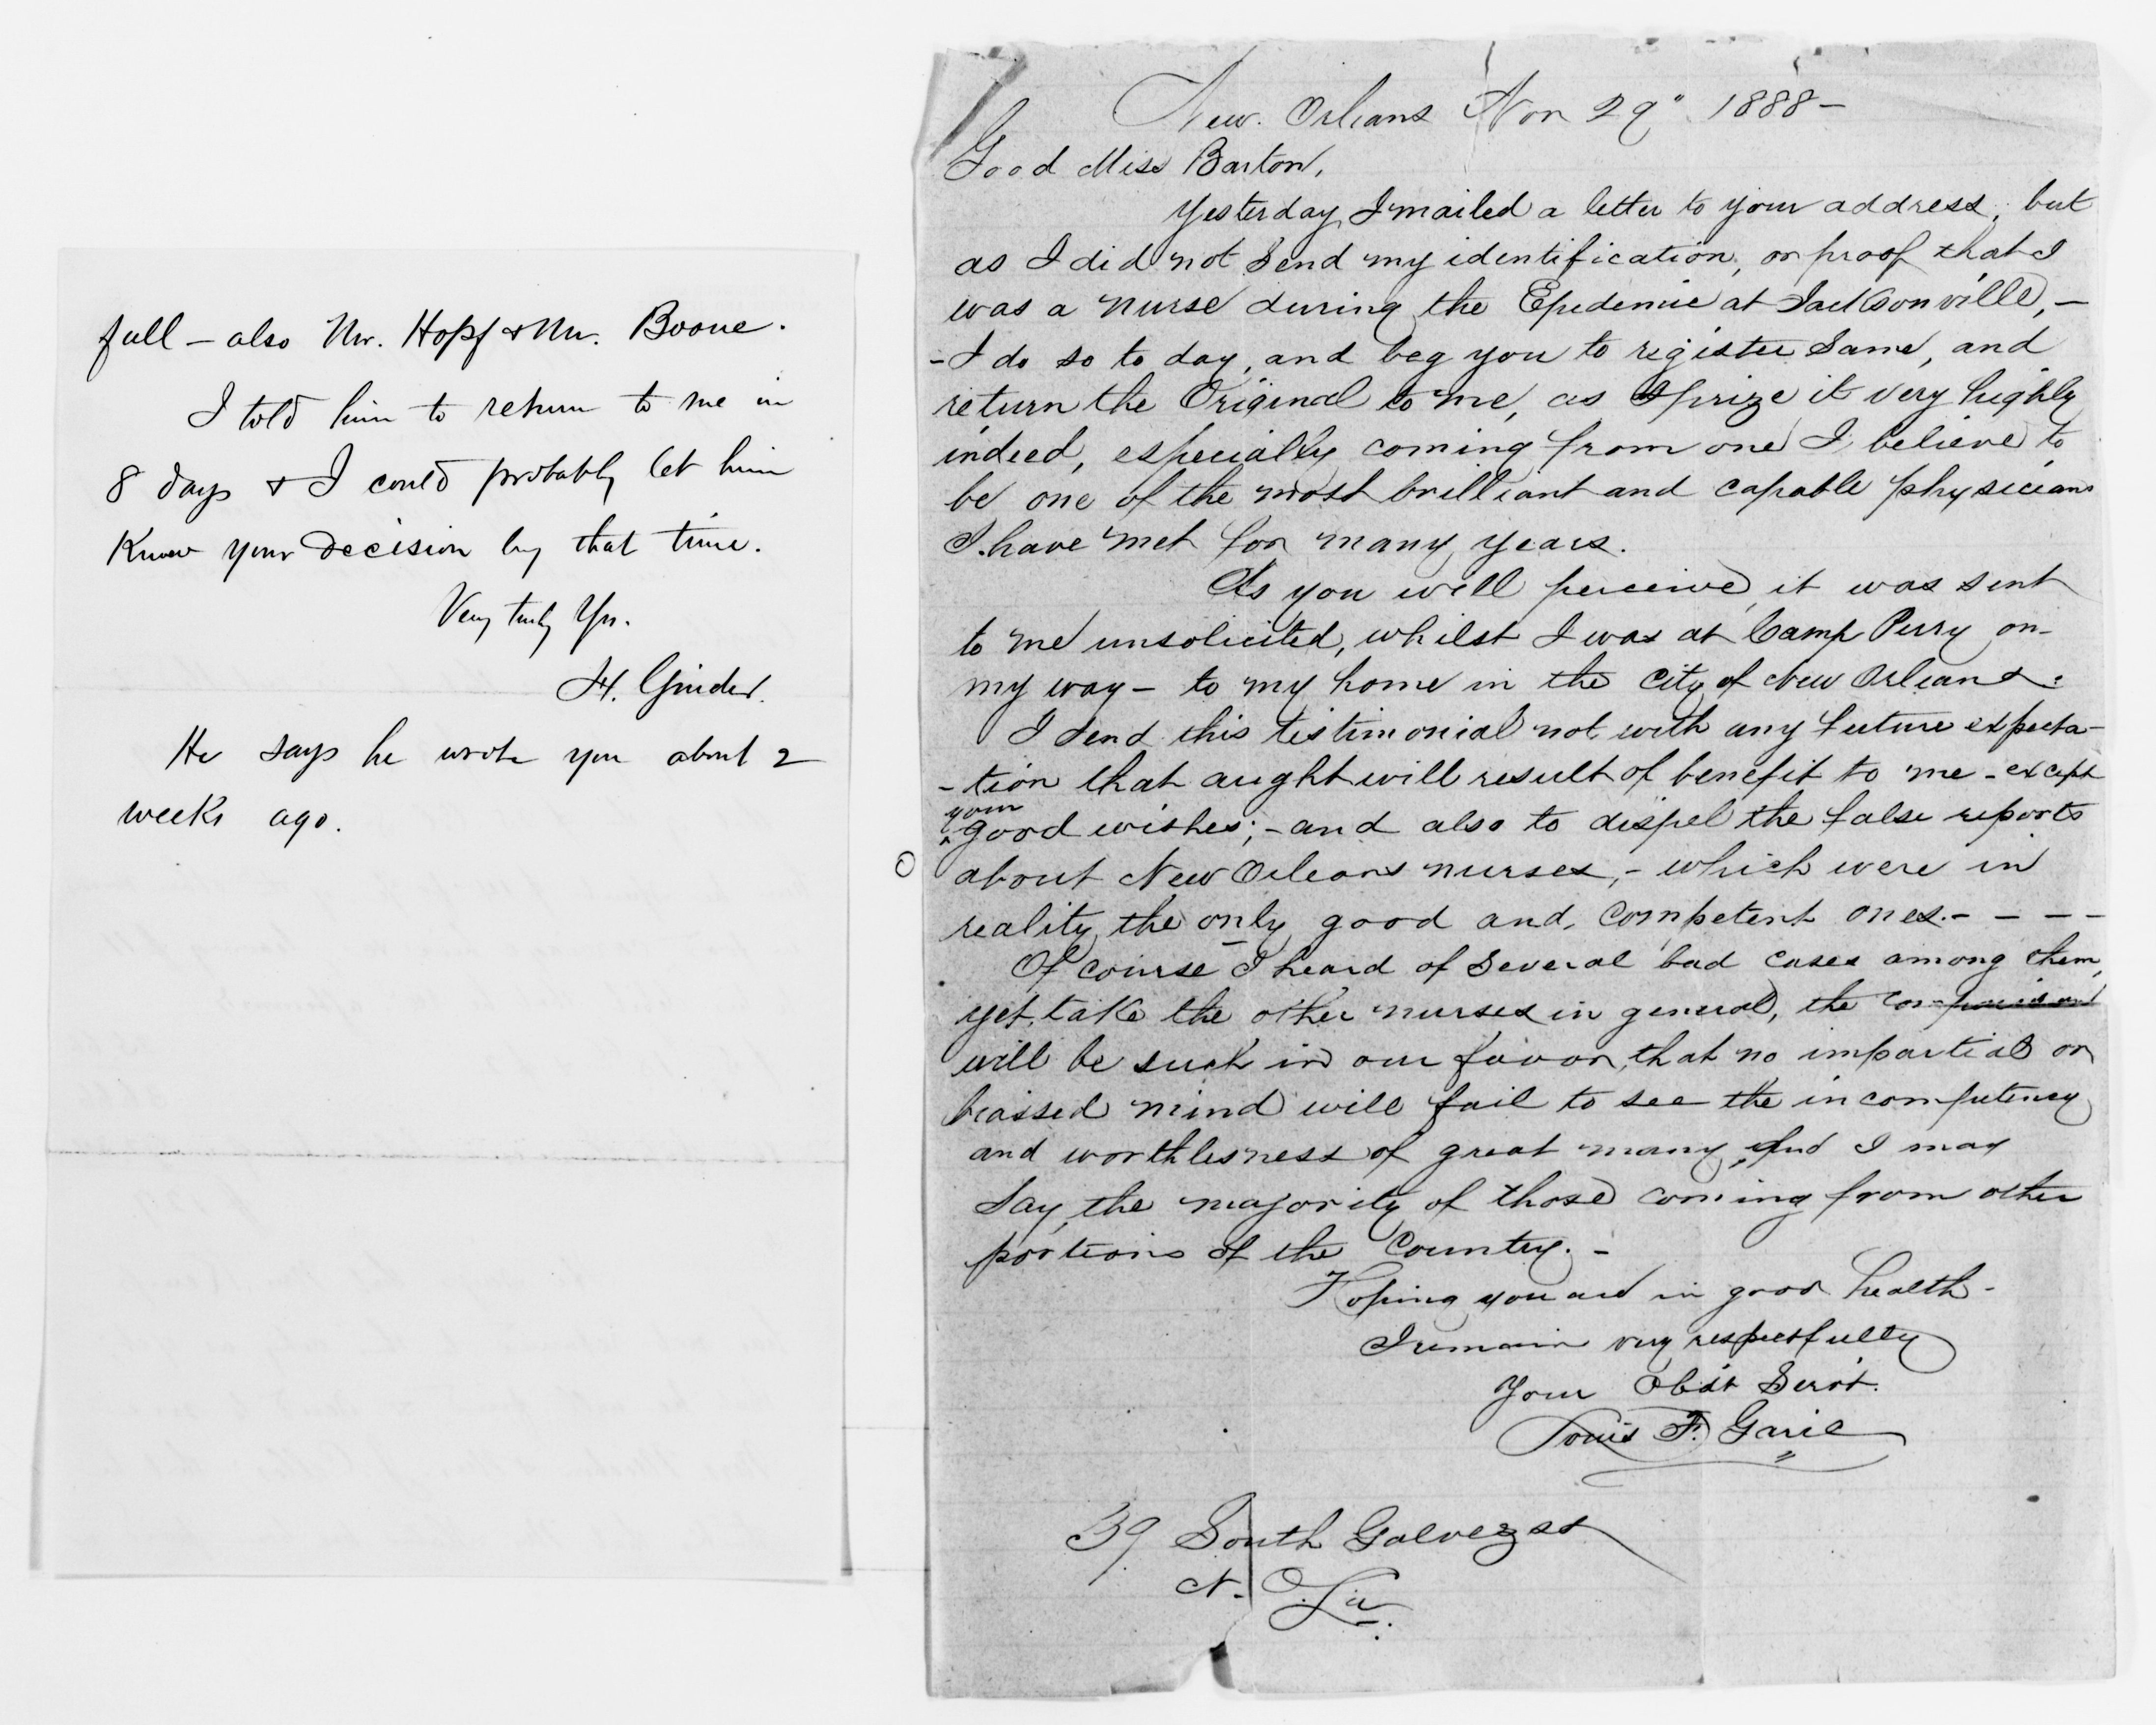 full – also Mr. Hopf & Mr. Boone.
I told him to return to me in
8 days & I could probably let him
Know your decision by that time.
Very truly Yrs.
H. Ginder.
He says he wrote you about 2
weeks ago.
New. Orleans Nov 29" 1888–
Good Miss Barton,
Yesterday, I mailed a letter to your address, but
as I did not Send my identification, or proof that I
was a nurse during the Epidemic at Jacksonville, –
– I do so to day, and beg you to register Same, and
return the Original to me, as I prize it very highly
indeed, especially coming from one I believe to
be one of the most brilliant and capable physicians
I have met for many years.
As you will perceive, it was sent
to me unsolicited, whilst I was at Camp Perry on-
my way – to my home in the City of New Orleans.
I send this testimonial not with any future expecta–
– tion that aught will result of benefit to me – except
your
^ good wishes; – and also to dispel the false reports
about New Orleans nurses, – which were in
reality the only good and, competent ones. – – – –
Of course I heard of several bad cases among them,
yet, take the other nurses in general, the comparison
will be such in our favor, that no impartial or
biassed mind will fail to see the incompetency
and worthlesness of great many, And I may
Say, the majority of those coming from other
portions of the Country. –
Hoping you are in good health –
I remain very respectfully
Your Obdt Servt.
Louis F. Garic
39 South Galvez st
N. O. La.